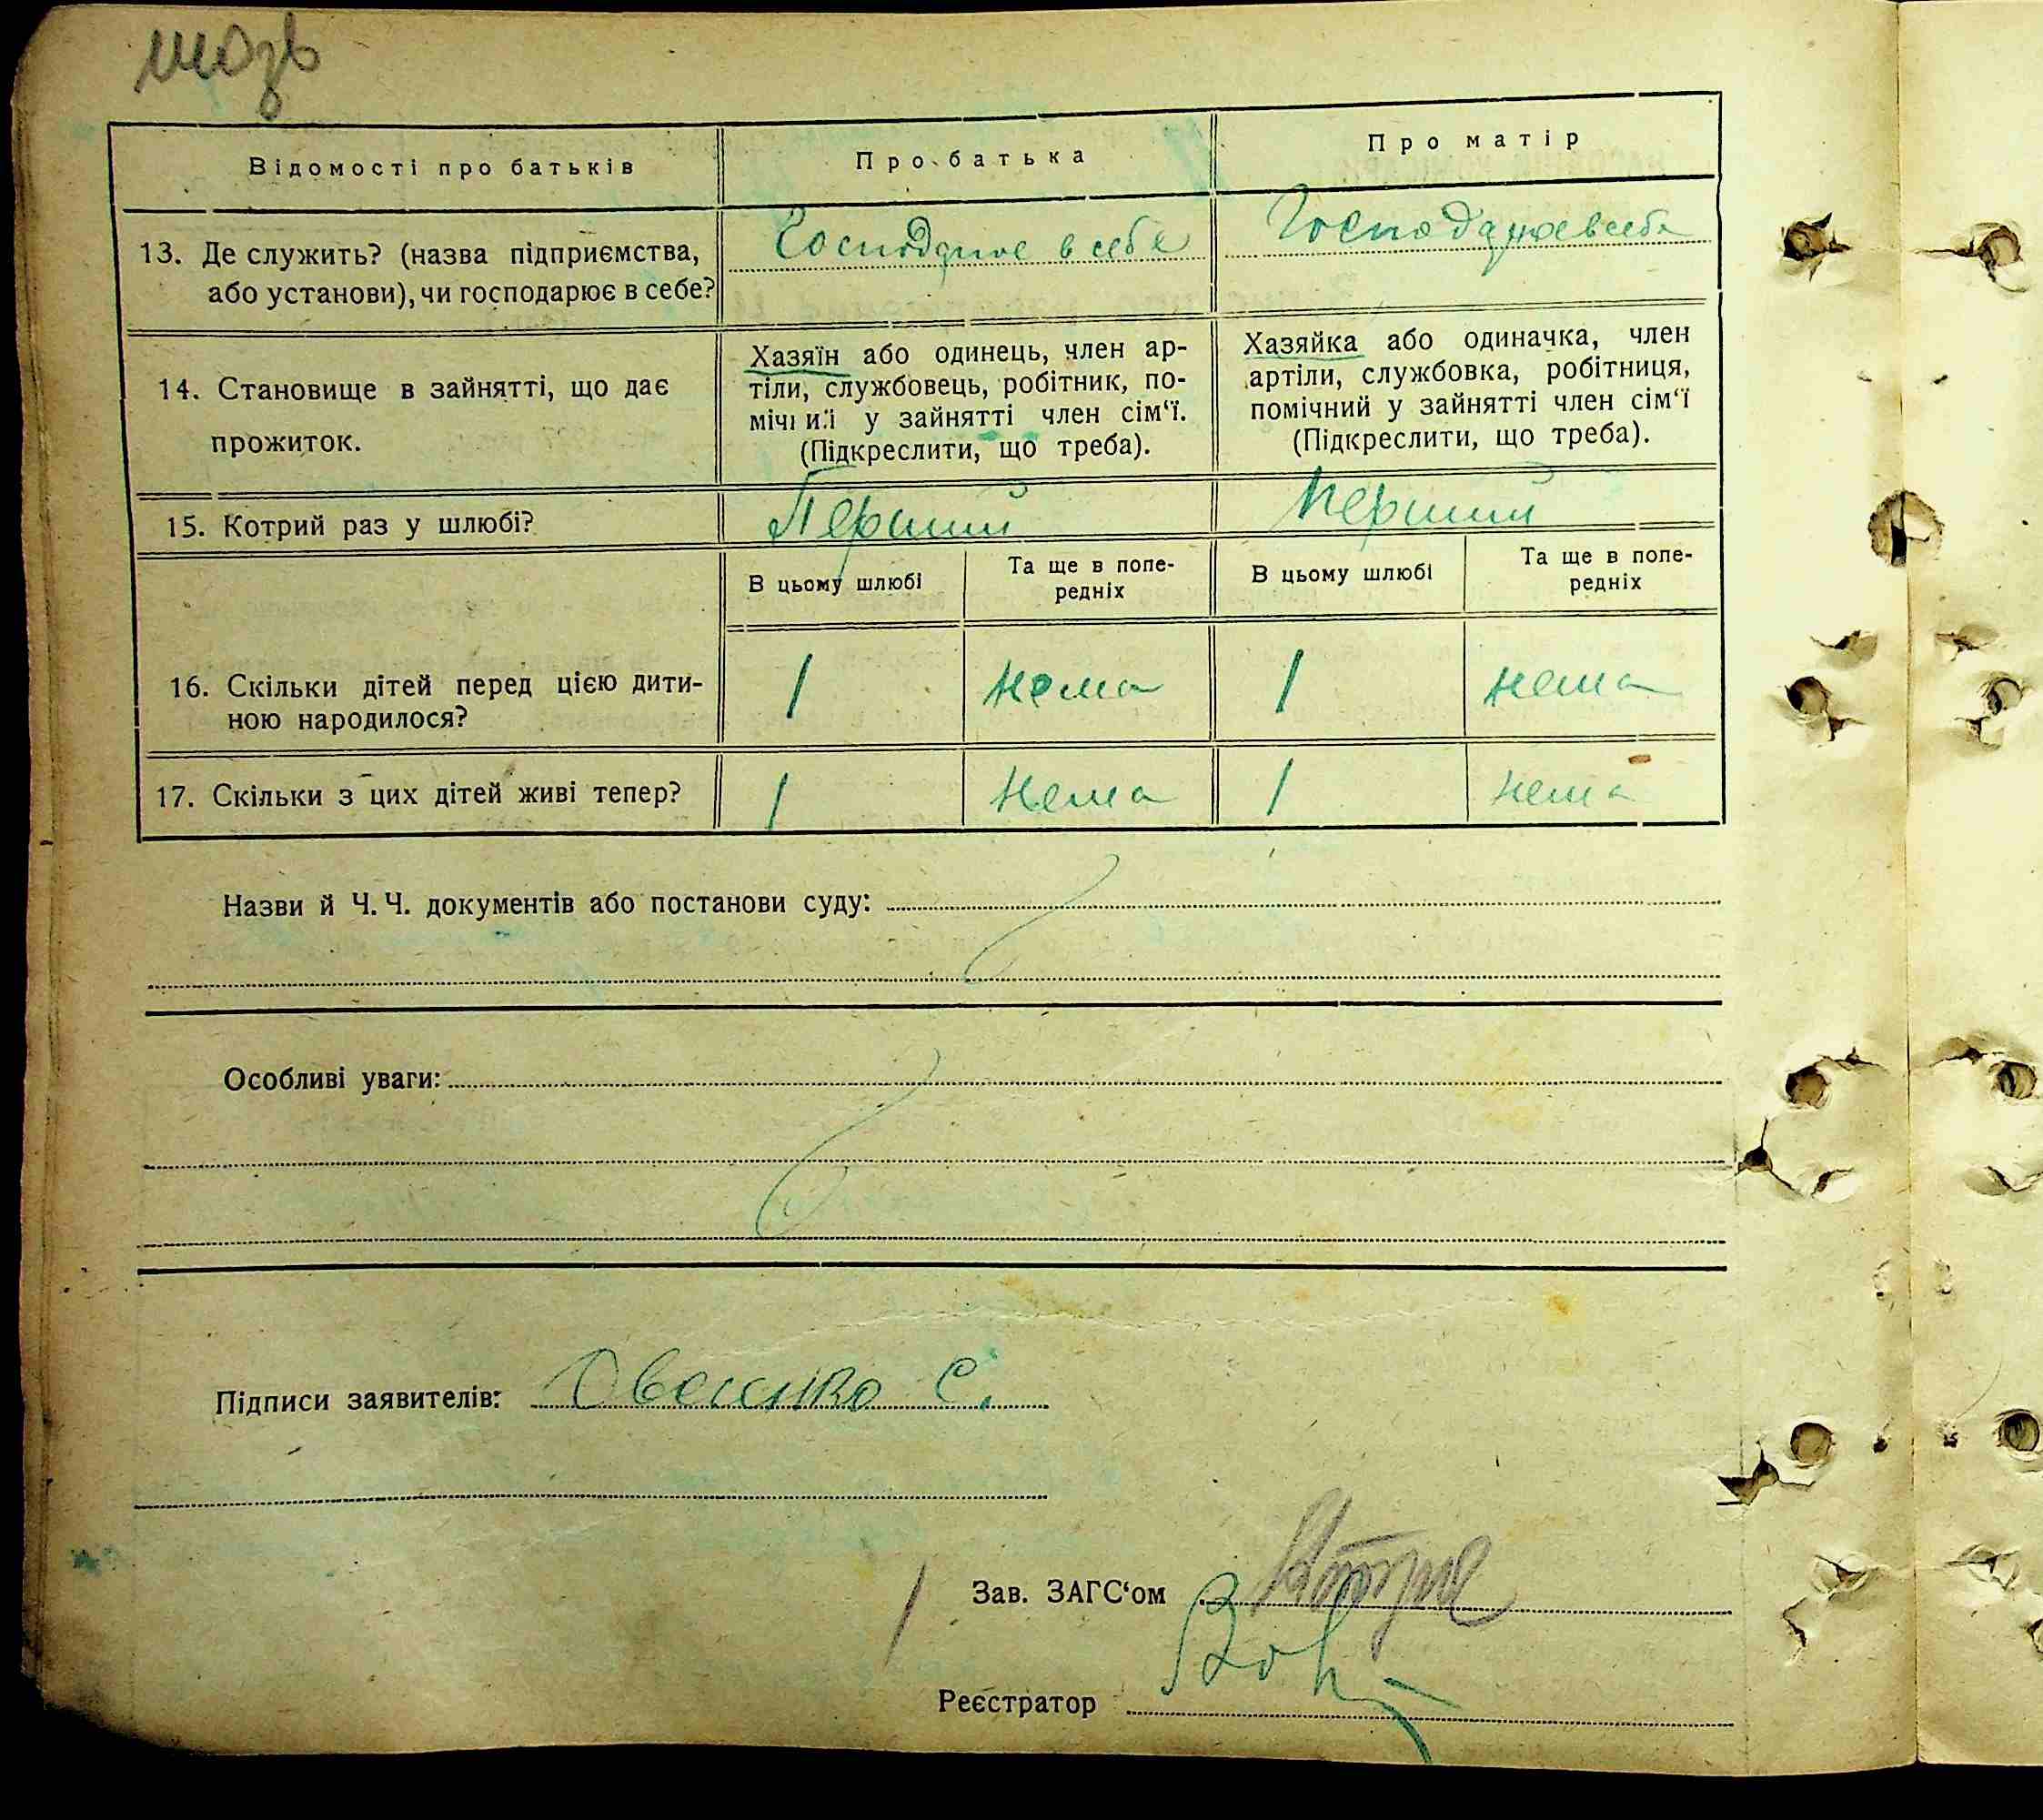 Відомості про батьків
Про батька
Про матір
13. Де служить? (назва підприємства,
або установи), чи господарює в себе?
Господарює в себе
Господарює в себе
14. Становище в зайнятті, що дає
прожиток.
Хазяїн або одинець, член ар-
тіли, службовець, робітник, по-
мічний у зайнятті член сім‘ї.
(Підкреслити, що треба).
Хазяйка або одиначка, член
артіли, службовка, робітниця,
помічний у зайнятті член сім‘ї
(Підкреслити, що треба).
15. Котрий раз у шлюбі?
Перший
Перший
В цьому шлюбі
Та ще в попе-
редніх
В цьому шлюбі
Та ще в попе-
редніх
16. Скільки дітей перед цією дити-
ною народилося?
1 нема 1 нема
17. Скільки з цих дітей живі тепер?
1 нема 1 нема
Назви й Ч. Ч. документів або постанови суду:
Особливі уваги:
Підписи заявителів:
Зав. ЗАГС‘ом
Реєстратор